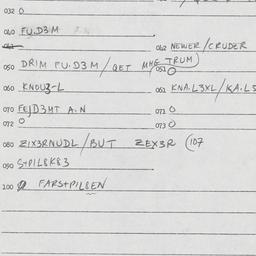 032 0
040 FU.D3M
042 NEWER/CRUDER
050 DRIM FU.D3M/GET MHE TRUM)
051 0
060 KNOU3-L
061 KNA.L3XL/KA.L3
070 FE/D3MT A.N
071 0
072 0
073 0
080 ZIX3RNUDL/BUT ZEX3R (107
090 S+PIL8K83
100 0 FARS+PIL8EN